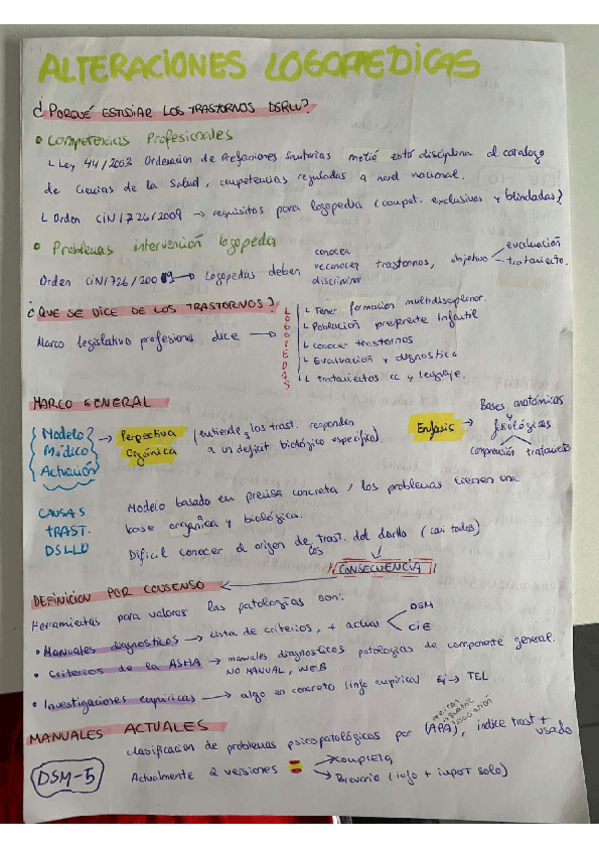 ALTERACIONES LOGOPEDICAS
¿PORQUÉ ESTUDIAR LOS TRASTORNOS DSRLL?
• Competencias Profesionales
└ Ley 44/2003 Ordenación de Profesiones Sanitarias metió esta disciplina al catalogo
de Ciencias de la Salud, competencias reguladas a nivel nacional.
└ Orden CIN/726/2009 → requisitos para logopedia (compet. exclusivas y blindadas)
• Problemas intervención logopeda
Orden CIN/726/2009 → Logopedas deben conocer
reconocer trastornos, objetivo
discriminar
evaluación
tratamiento.
¿QUE SE DICE DE LOS TRASTORNOS?
Marco legislativo profesional dice →
LOGOPEDAS
└ Tener formación multidisciplinar.
└ Población infantil
└ Conocer trastornos
└ Evaluación y diagnostico
└ Tratamientos cc y lenguaje.
MARCO GENERAL
Modelo
Médico
Actuación
→ Perpectiva
Orgánica
(entiende, los trast. responden
a un deficit biológico específico)
Enfasis →
Bases anatómicas
y
fisiológicas
Comprensión tratamiento
CAUSAS
TRAST.
DSLLO
Modelo basado en premisa concreta, los problemas tienen una
base orgánica y biológica.
Dificil conocer el origen de los trast. del dsrllo (casi todos)
CONSECUENCIA
DEFINICION POR CONSENSO
Herramientas para valorar las patologías son:
• Manuales diagnosticos → lista de criterios, + actual
DSM
CIE
• Criterios de la ASHA → manuales diagnosticos patologias de componente general.
NO MANUAL, WEB
• Investigaciones empíricas → algo en concreto (info empírica) Ej → TEL
MANUALES ACTUALES
DSM-5
clasificación de problemas psicopatológicos por (APA), indice trast +
usado
Actualmente 2 versiones
→ completa
→ Breviario (info + import solo)